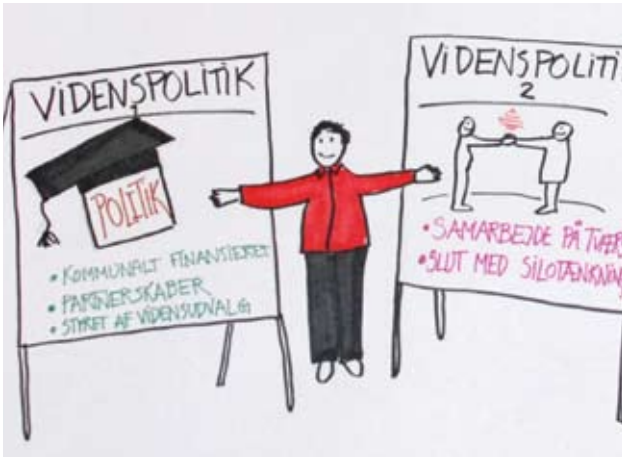 VIDENSPOLITIK
POLITIK
• KOMMUNALT FINANSIERET
• PARTNERSKABER
• STYRET AF VIDENSUDVALG
VIDENSPOLITI
2
• SAMARBEJDE PÅ TVÆRS
• SLUT MED SILOTÆNKNING